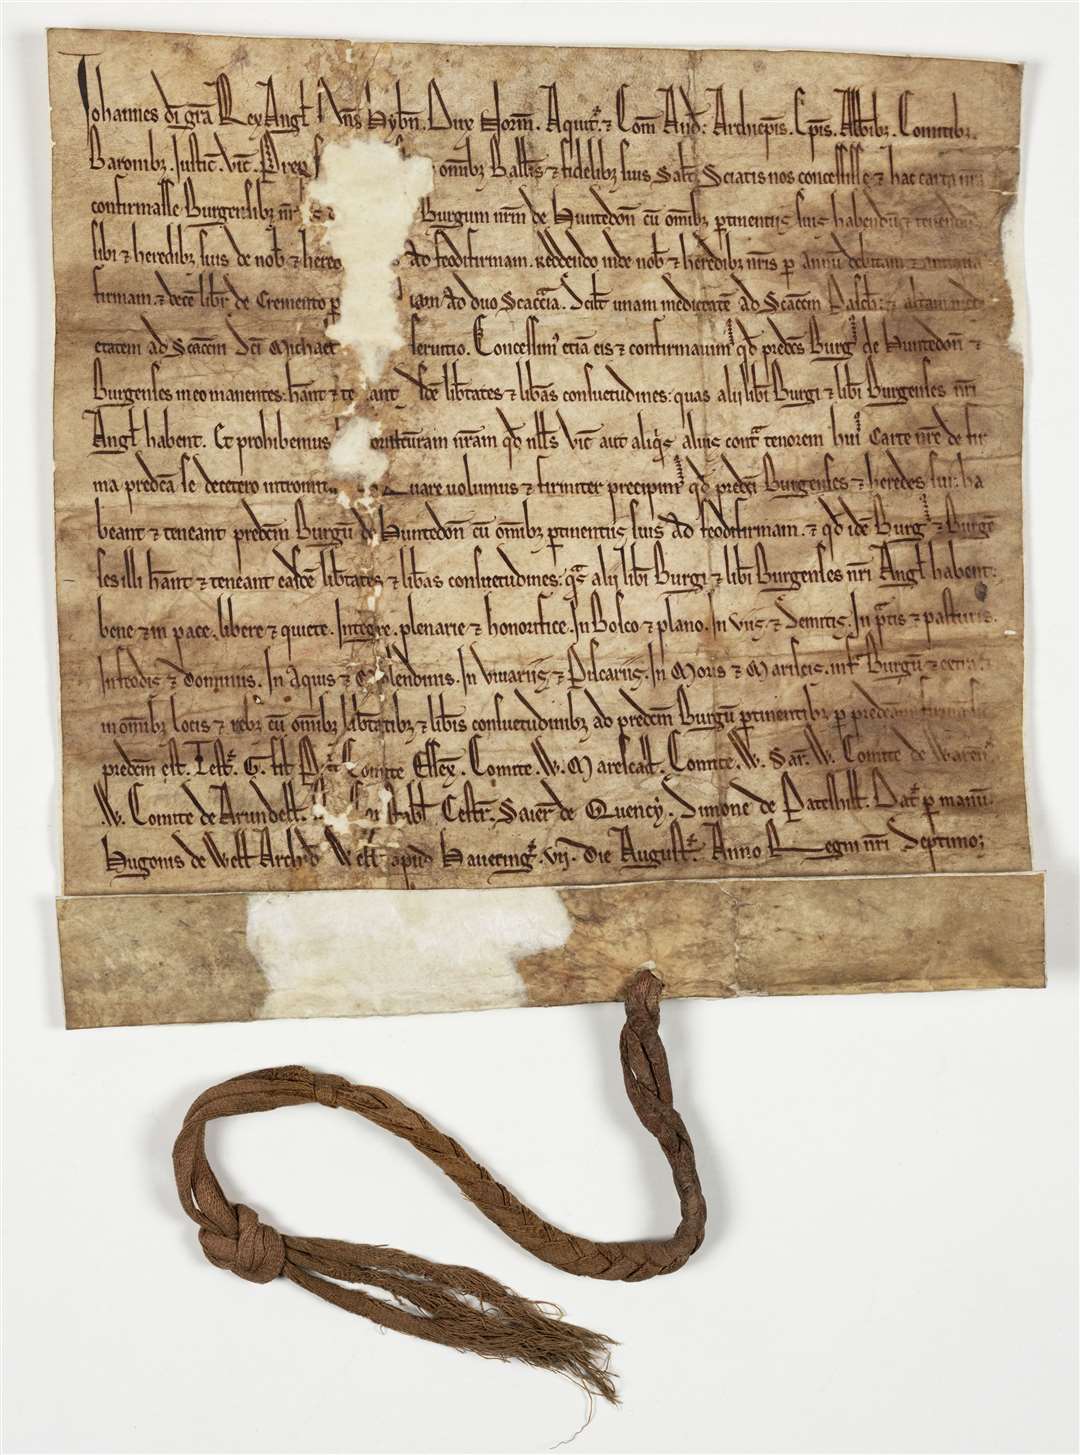 Johannes di gra Rex Angl Dns Hybn. Dux Norm. Aquit. & Com And. Archiepis. Epis. Abbibz. Comitibz.
Baronibz. Justic. Vic. Prep omibz Ballis & fidelibz suis Salt. Sciatis nos concessisse & hac carta nra
confirmasse Burgensibz nris Burgum nrm de Huntedon cu omibz ptinentiis suis habendu & tenendu
sibi & heredibz suis de nob & hered ad feodifirmam. Reddendo inde nob & heredibz nris p annu debitam & antiqua
firmam & dece libr de Cremento p ad duo Scaccia. Scilt unam medietate ad Scaccm Pasch: & aliam medi
etatem ad Scaccm Sci Michael servitio. Concessim etia eis & confirmavim qd predcs Burg de Huntedon &
Burgenses in eo manentes: hant & te ant libtates & libas consuetudines: quas alii libi Burgi & libi Burgenses nri
Angl habent. Et prohibemus nram qd nlls Vic aut aliqs alius contra tenorem hui Carte nre de fir
ma predca se decetero intromit Quare volumus & firmiter precipim qd predci Burgenses & heredes sui ha
beant & teneant predcm Burgu de Huntedon cu omibz ptinentiis suis ad feodifirmam. & qd ide Burg & Burgen
ses illi hant & teneant easde libtates & libas consuetudines: qs alii libi Burgi & libi Burgenses nri Angl habent:
bene & in pace. libere & quiete. Integre. plenarie & honorifice. In Bosco & plano. In viis & Semitis. In pratis & pasturis.
In feodis & Dominiis. In Aquis & Molendinis. In vivariis & Piscariis. In Moris & Mariscis. infra Burgu & extra
in omibz locis & rebz cu omibz libtatibz & libis consuetudinibz ad predcm Burgu ptinentibz p predcam firmam
predcm est. Test. G. fil Pet Comite Essex. Comite. W. Marescall. Comite. W. Sar. W. Comite de Waren
W. Comite de Arundell. Cestr. Saiero de Quency. Simone de Pateshill. Dat p manu.
Hugonis de Well Archid Well apud Havering. vij. die August. Anno Regni nri Septimo;